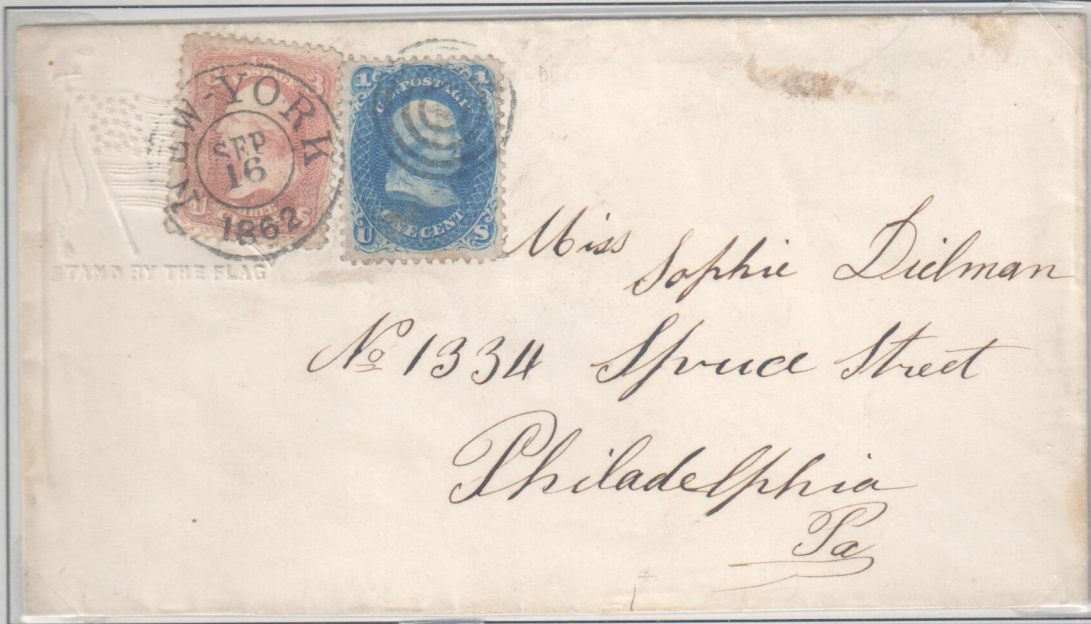 NEW-YORK
SEP
16
1862
3
U THREE S
1 1
U.S. POSTAGE
U ONE CENT S
STAND BY THE FLAG
Miss Sophie Dielman
No 1334 Spruce Street
Philadelphia
Pa